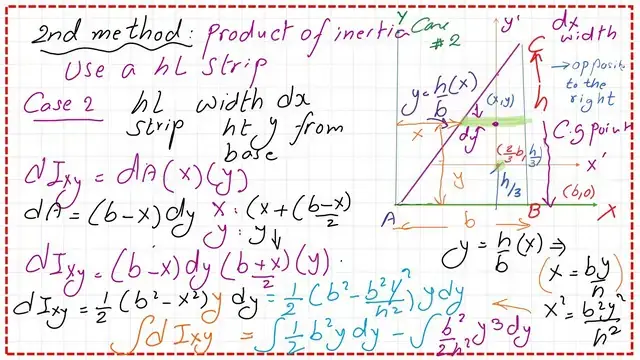 2nd method: product of inertia
Use a hL strip
Case 2 hL width dx
strip ht y from
base
dIxy = dA(x)(y)
dA = (b-x)dy x: (x+(b-x)/2)
y: y↓
dIxy = (b-x)dy (b+x/2)(y)
dIxy = 1/2 (b²-x²) y dy = 1/2 (b² - b²y²/h²) y dy
∫dIxy = ∫1/2 b²y dy - ∫ b²/2h² y³ dy
Y Case #2
y'
dx
width
C
→ opposite
to the
right
h
y = h/b (x)
(x,y)
x
dy
C.g point
(2/3 b, h/3)
x'
y
h/3
(b,0)
A
b
B
X
y = h/b (x) ⇒
(x = by/h
x² = b²y²/h²